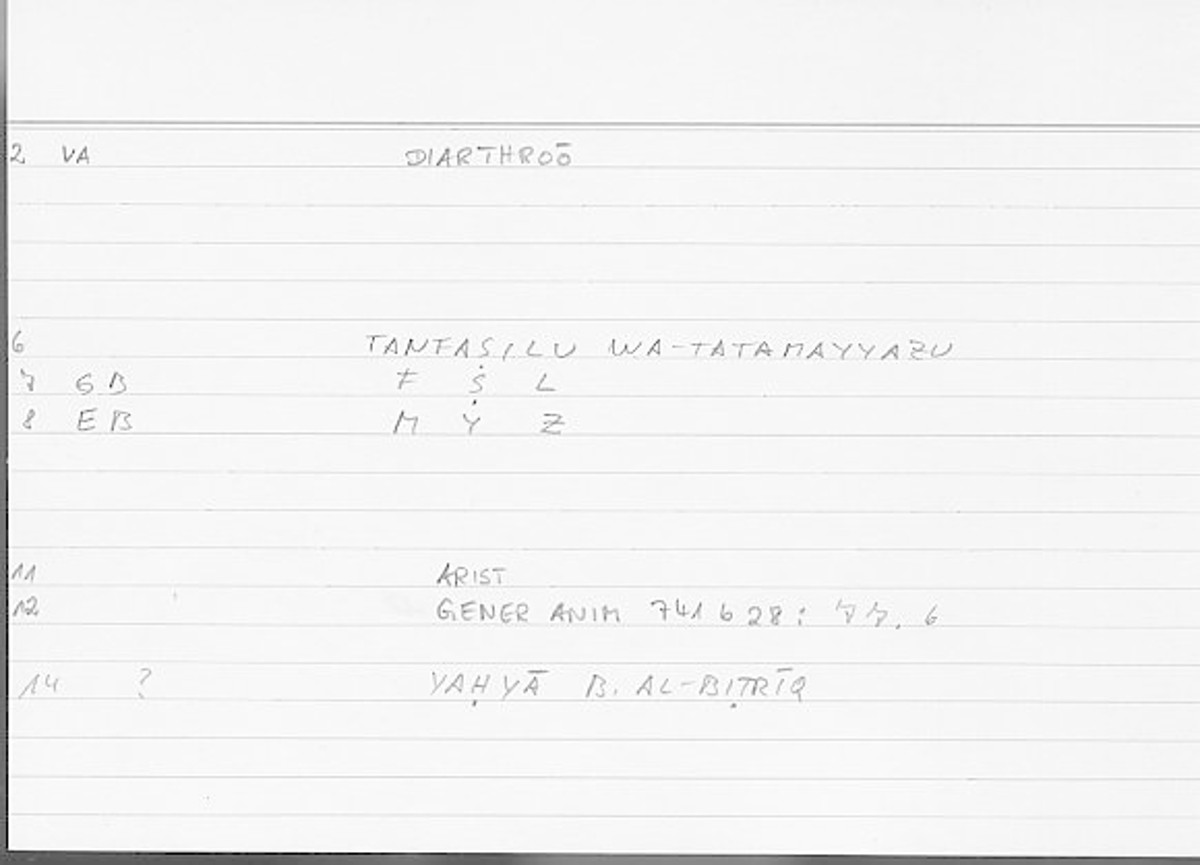 2 VA DIARTHROŌ
6 TANFAṢILU WA-TATAMAYYAZU
7 GB F Ṣ L
8 EB M Y Z
11 ARIST
12 GENER ANIM 741 b 28 : 77. 6
14 ? YAḤYĀ B. AL-BIṬRĪQ